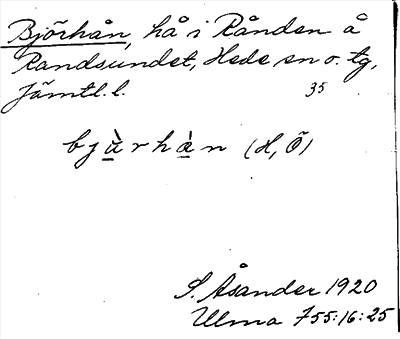 Björhån, hå i Rånden å
Randsundet, Hede sn o. tg,
Jämtl. l. 35
bjùrhàn (H, Ö)
S. Åsander 1920
Ulma 755:16:25